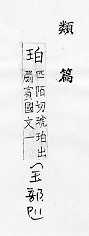 類篇
珀
匹陌切琥珀出
罽賓國文一
(玉部